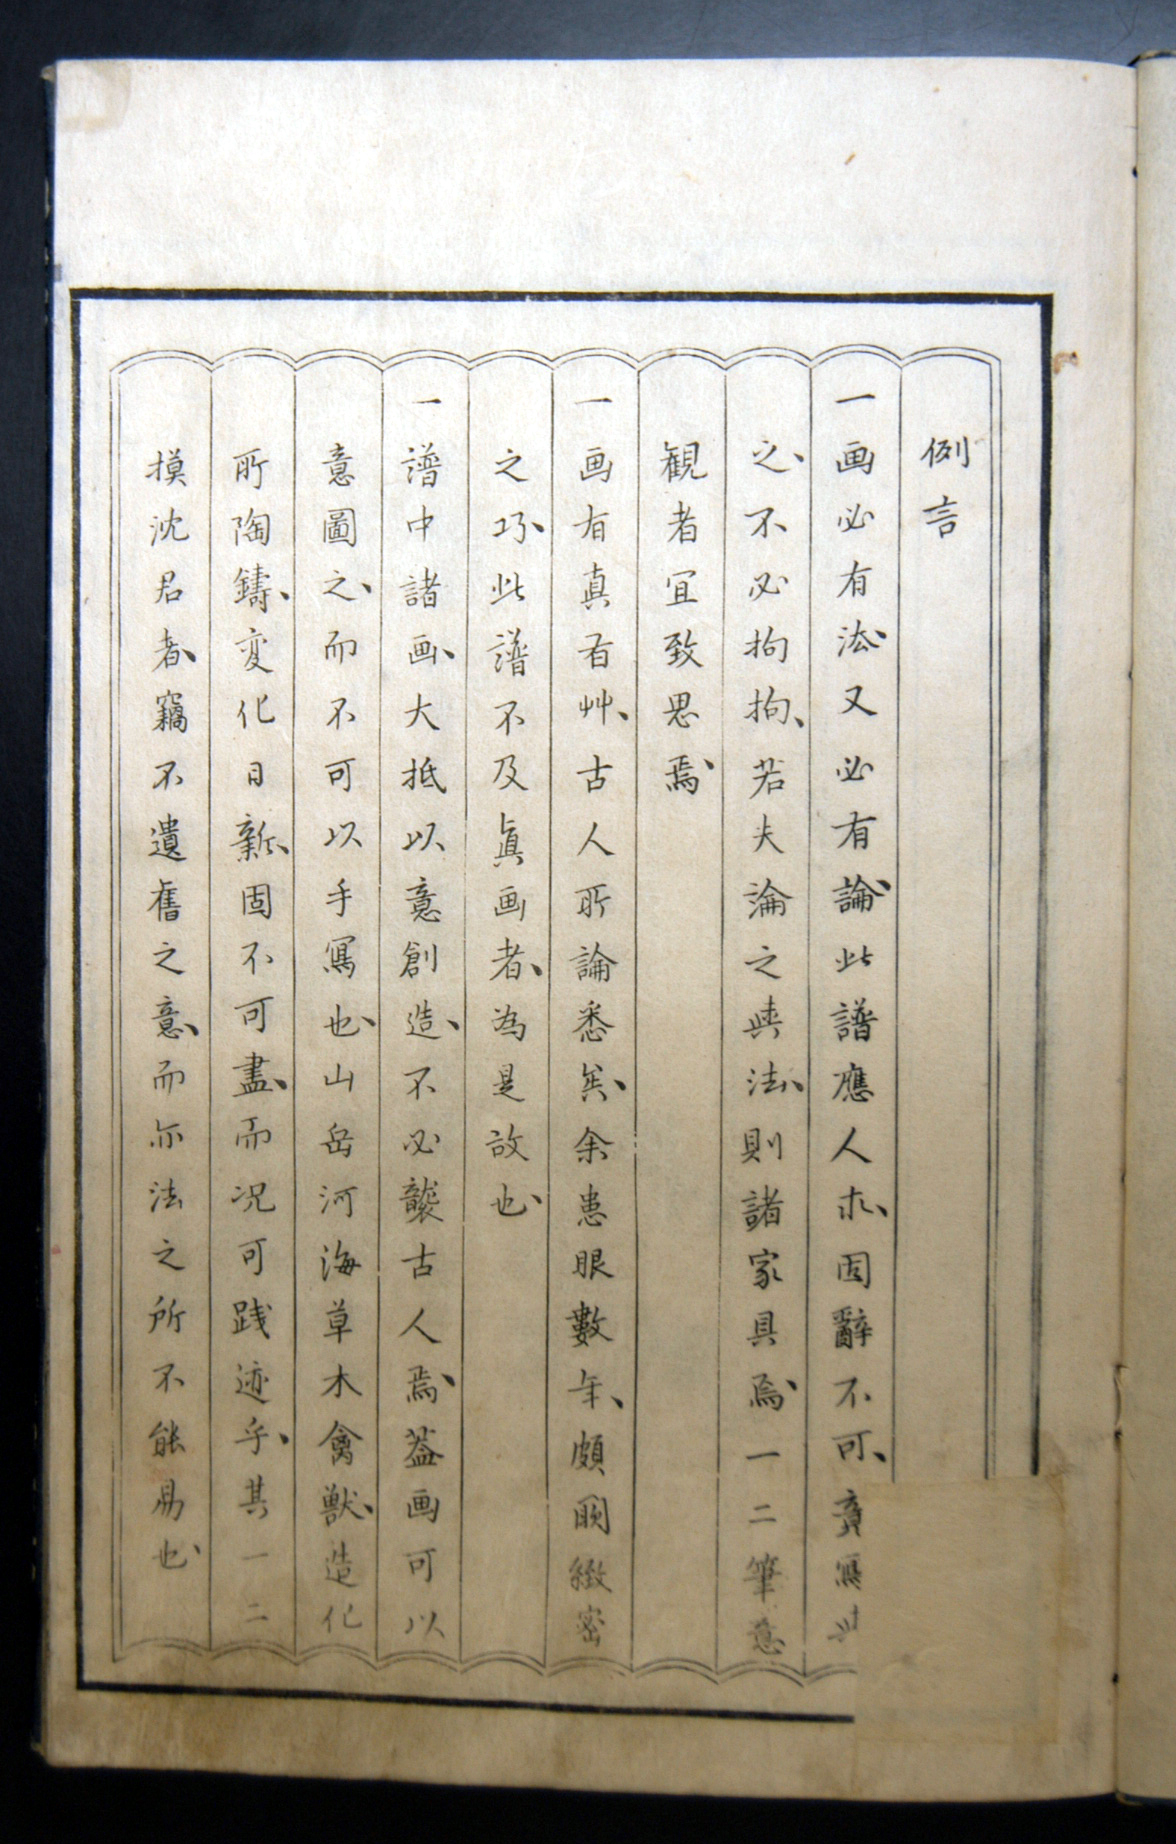 例言
一画必有法、又必有論、此譜應人求、固辭不可、責寫
之、不必拘拘、若夫論之與法、則諸家具焉、一二筆意
観者宜致思焉、
一画有真有艸、古人所論悉矣、余患眼數年、頗闕緻密
之巧、此譜不及真画者、為是故也、
一譜中諸画、大抵以意創造、不必襲古人焉、蓋画可以
意圖之、而不可以手寫也、山岳河海草木禽獣、造化
所陶鑄、変化日新、固不可盡、而况可践迹乎、其一二
摸沈君者、竊不遺舊之意、而亦法之所不能易也、